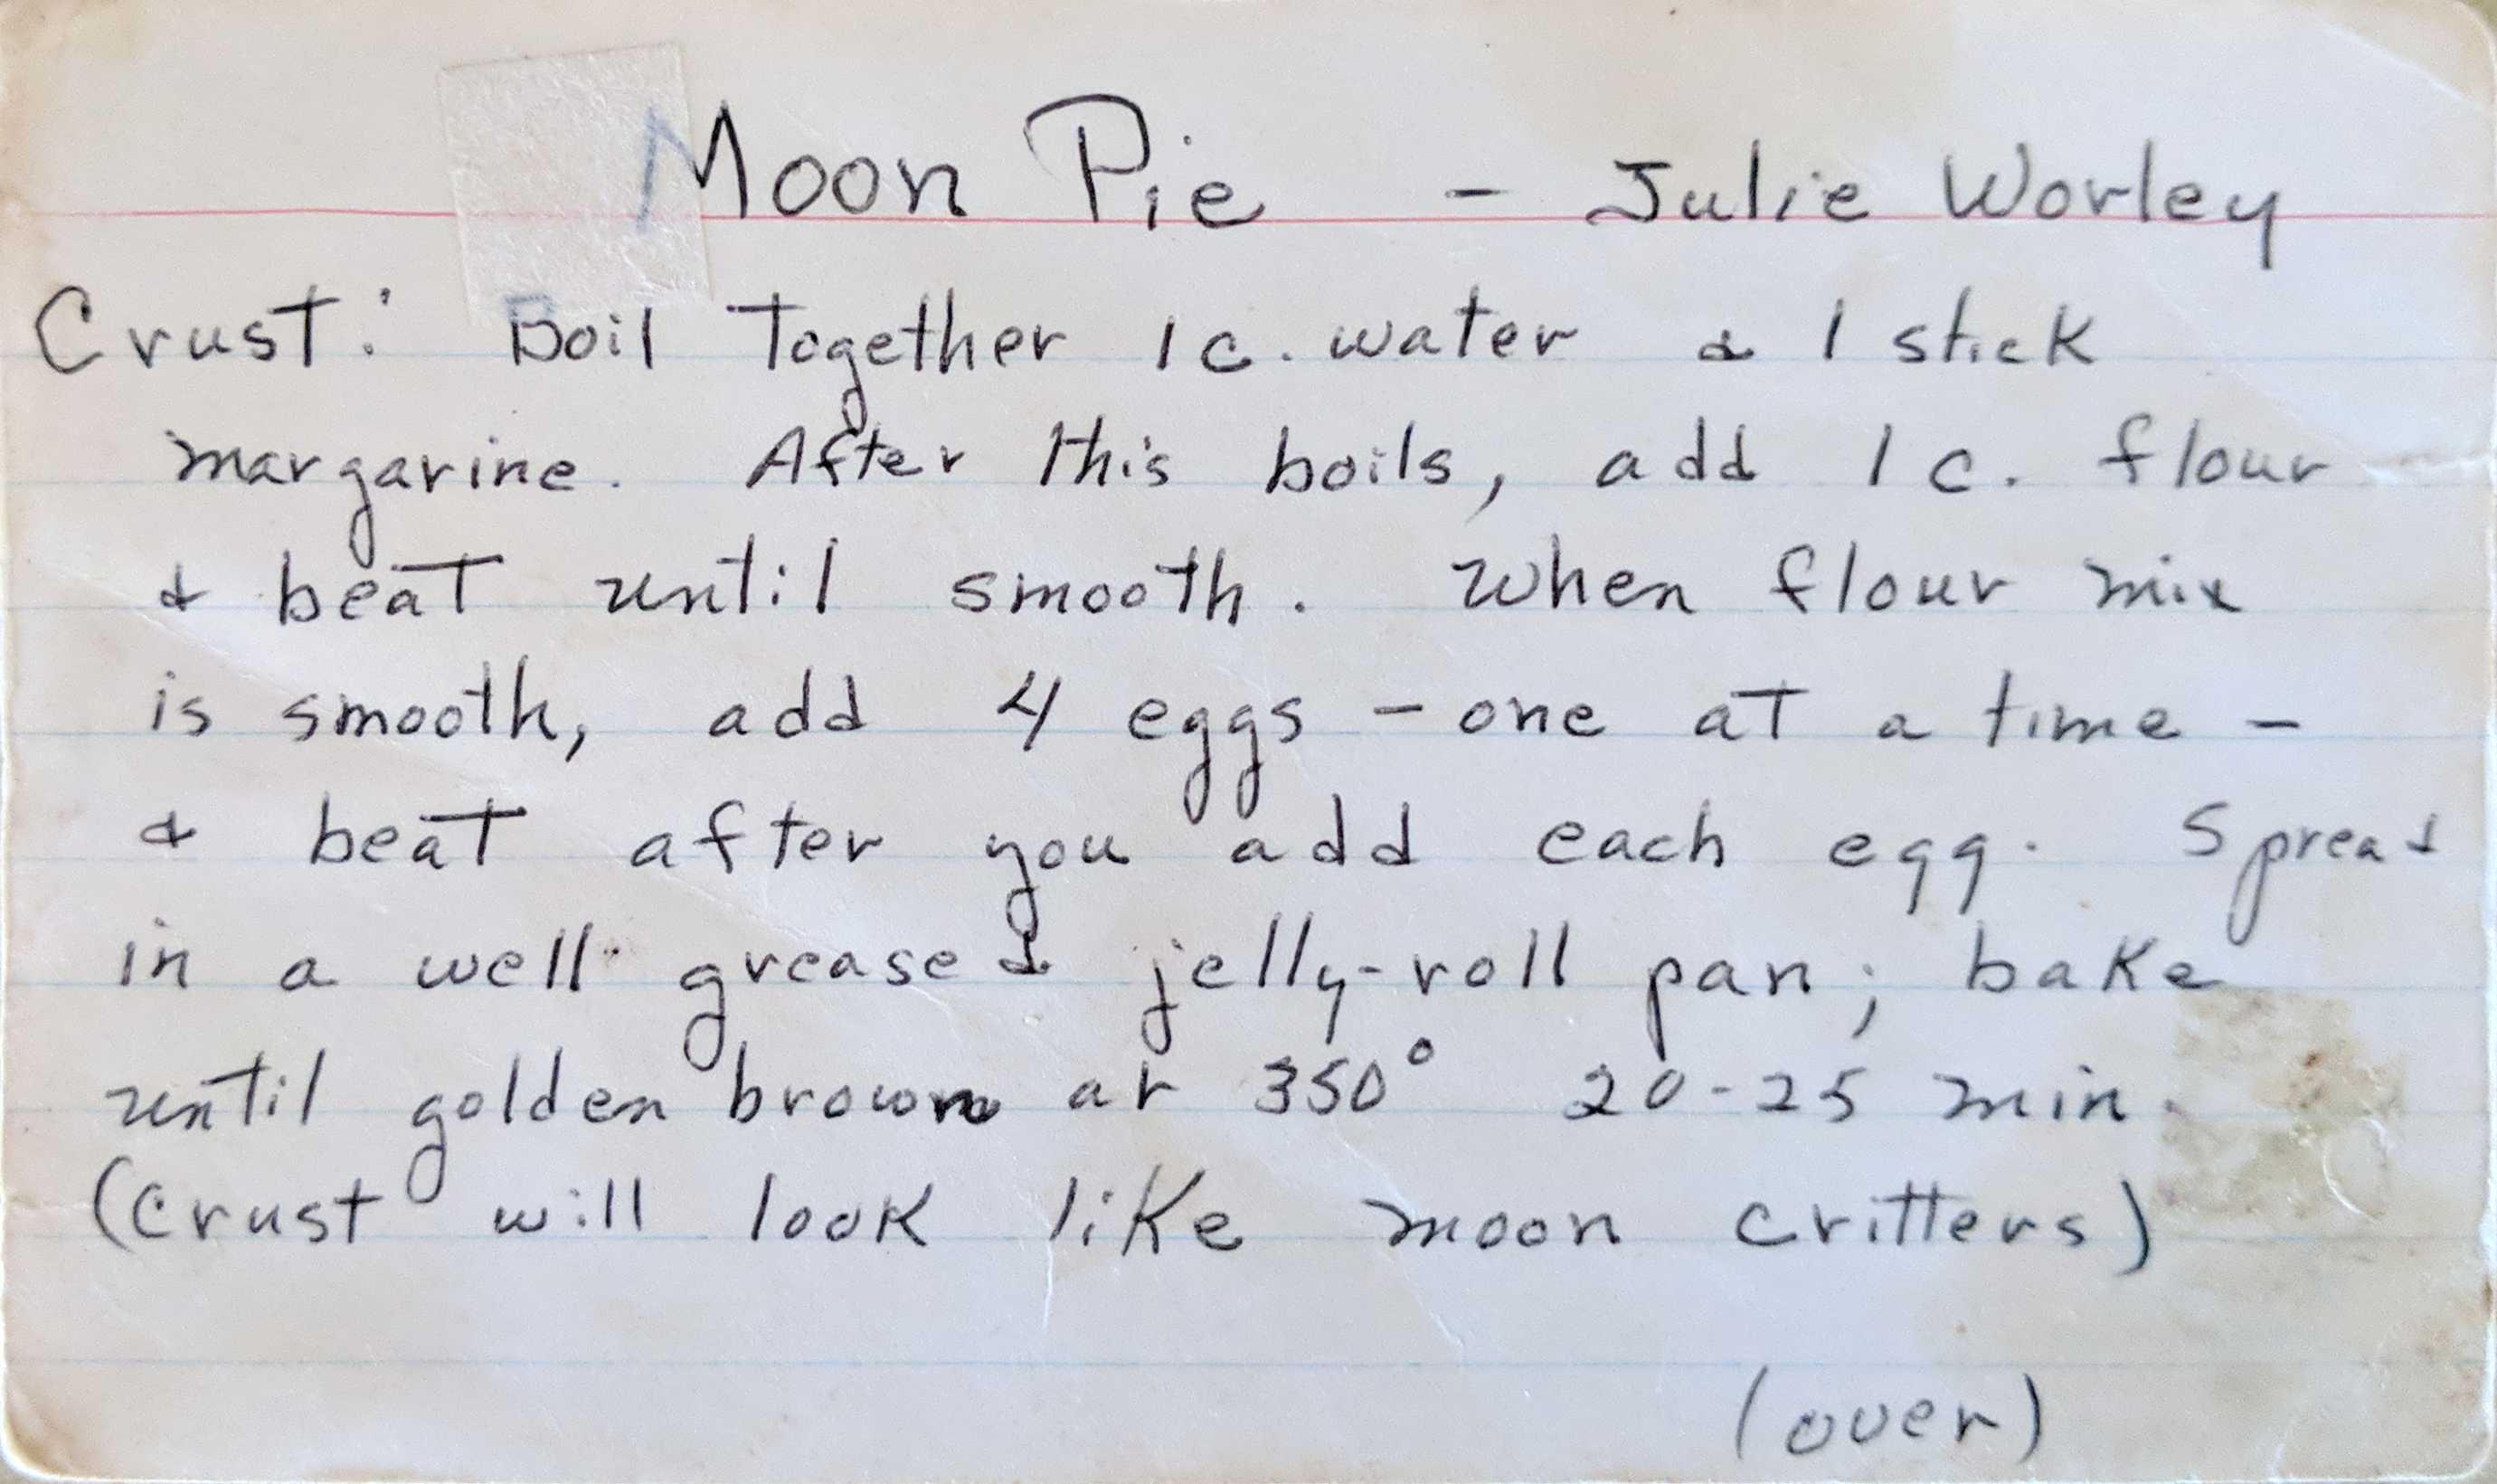 Moon Pie - Julie Worley
Crust: Boil Together 1 c. water & 1 stick
margarine. After this boils, add 1 c. flour
& beat until smooth. When flour mix
is smooth, add 4 eggs - one at a time -
& beat after you add each egg. Spread
in a well greased jelly-roll pan; bake
until golden brown at 350° 20-25 min.
(Crust will look like moon critters)
(over)